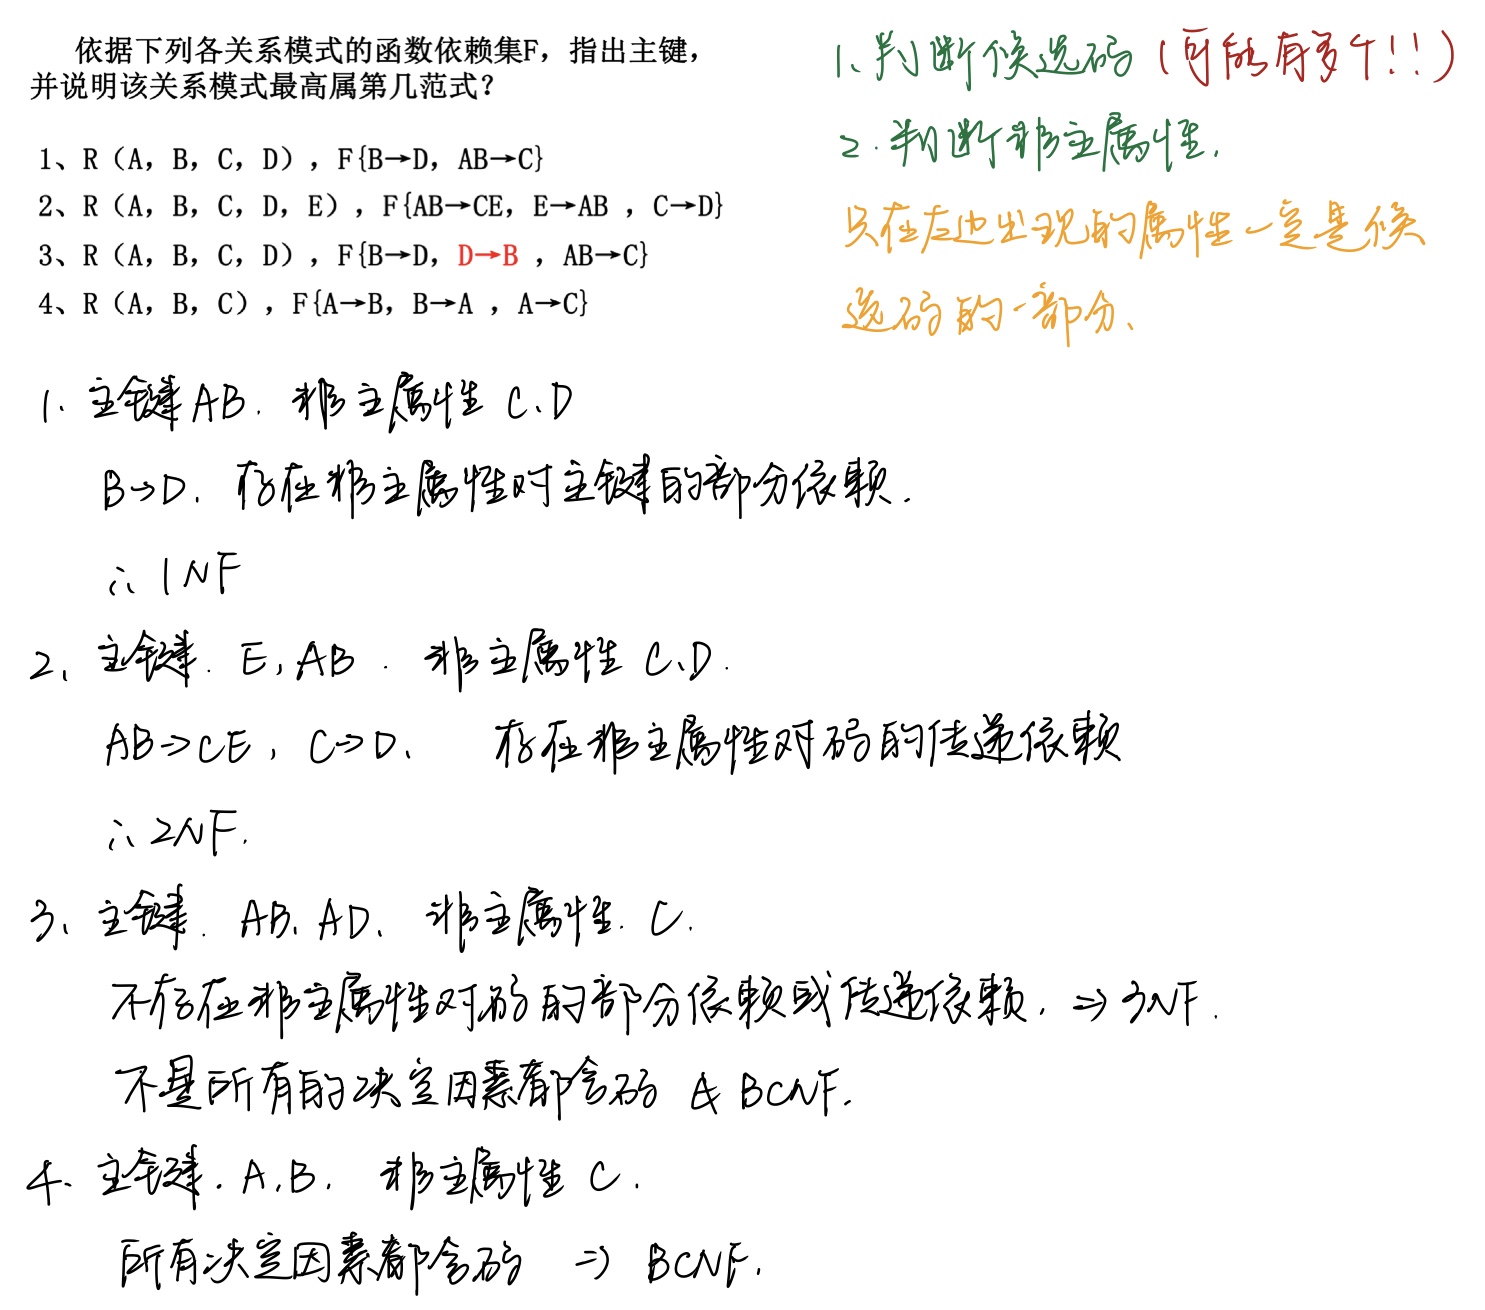 依据下列各关系模式的函数依赖集F，指出主键，
并说明该关系模式最高属第几范式？
1、R（A，B，C，D），F{B→D，AB→C}
2、R（A，B，C，D，E），F{AB→CE，E→AB ，C→D}
3、R（A，B，C，D），F{B→D，D→B ，AB→C}
4、R（A，B，C），F{A→B，B→A ，A→C}
1、判断候选码（可能有多个!!）
2.判断非主属性.
只在左边出现的属性一定是候
选码的一部分、
1、主键AB. 非主属性 C、D
B→D. 存在非主属性对主键的部分依赖.
∴ 1NF
2、主键. E, AB. 非主属性 C、D.
AB→CE, C→D、 存在非主属性对码的传递依赖
∴ 2NF.
3、主键. AB、AD、 非主属性. C.
不存在非主属性对码的部分依赖或传递依赖. ⇒ 3NF.
不是所有的决定因素都含码 ∉ BCNF.
4、主键. A,B. 非主属性 C.
所有决定因素都含码 ⇒ BCNF.